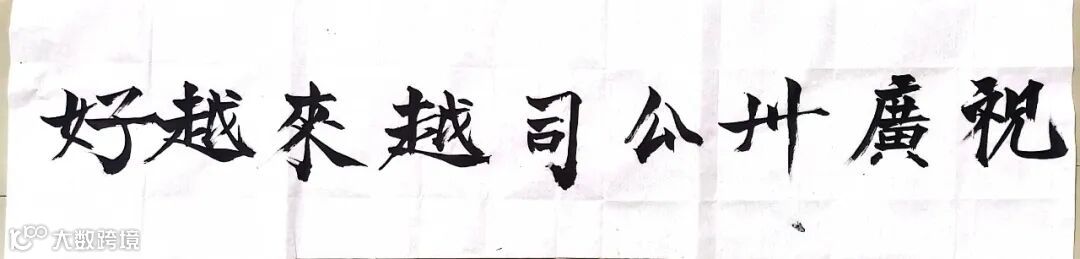 祝廣卅公司越來越好
大数跨境